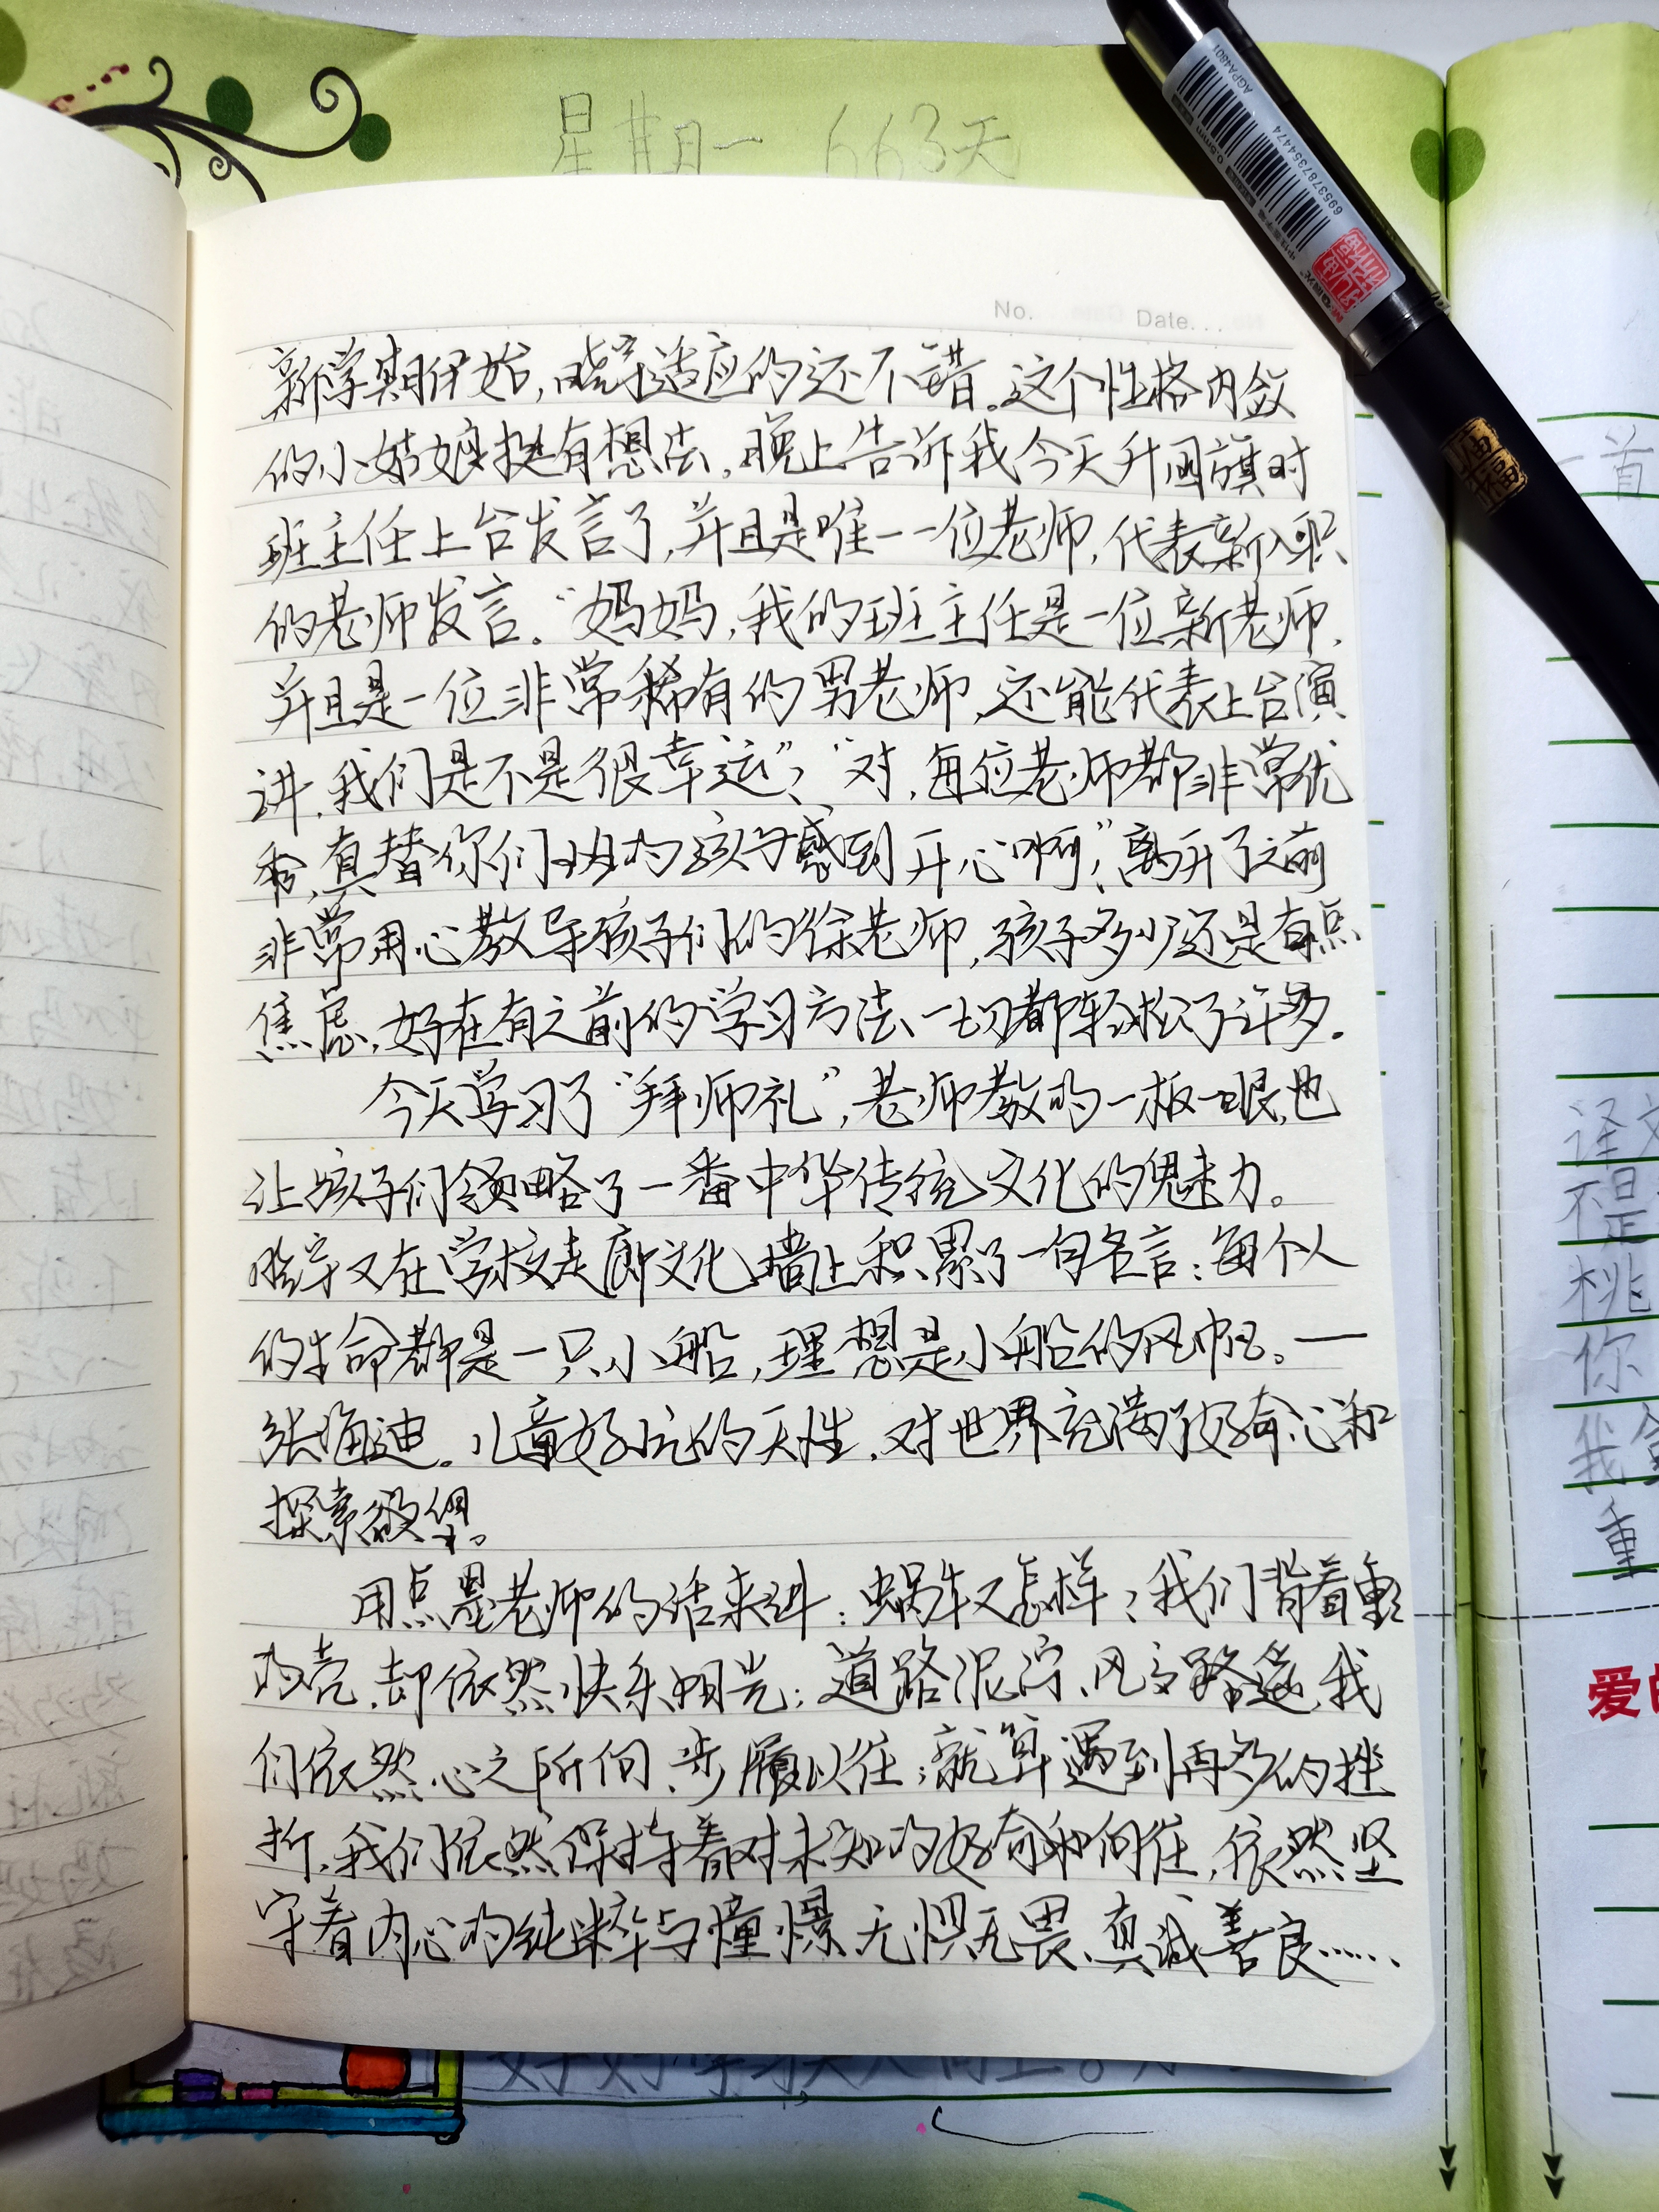 星期一 663天
No. Date...
新学期伊始,晓宇适应的还不错。这个性格内敛
的小姑娘挺有想法,晚上告诉我今天升国旗时
班主任上台发言了,并且是唯一一位老师,代表新入职
的老师发言。“妈妈,我的班主任是一位新老师,
并且是一位非常稀有的男老师,还能代表上台演
讲,我们是不是很幸运”?“对,每位老师都非常优
秀,真替你们班的孩子感到开心啊”!离开了之前
非常用心教导孩子们的徐老师,孩子多少还是有点
焦虑,好在有之前的学习方法,一切都轻松了许多。
今天学习了“拜师礼”,老师教的一板一眼,也
让孩子们领略了一番中华传统文化的魅力。
晓宇又在学校走廊文化墙上积累了一句名言:每个人
的生命都是一只小船,理想是小船的风帆。—
张海迪。儿童好玩的天性,对世界充满了好奇心和
探索欲望。
用点墨老师的话来讲:蜗牛又怎样?我们背着重重
的壳,却依然快乐阳光;道路泥泞、风雨路遥,我
们依然心之所向、步履以往;就算遇到再多的挫
折,我们依然保持着对未知的好奇和向往,依然坚
守着内心的纯粹与憧憬、无惧无畏、真诚善良……
AGPA4801
0.5mm
6953787354474
首
译文
不是
桃
你
我
重
爱的